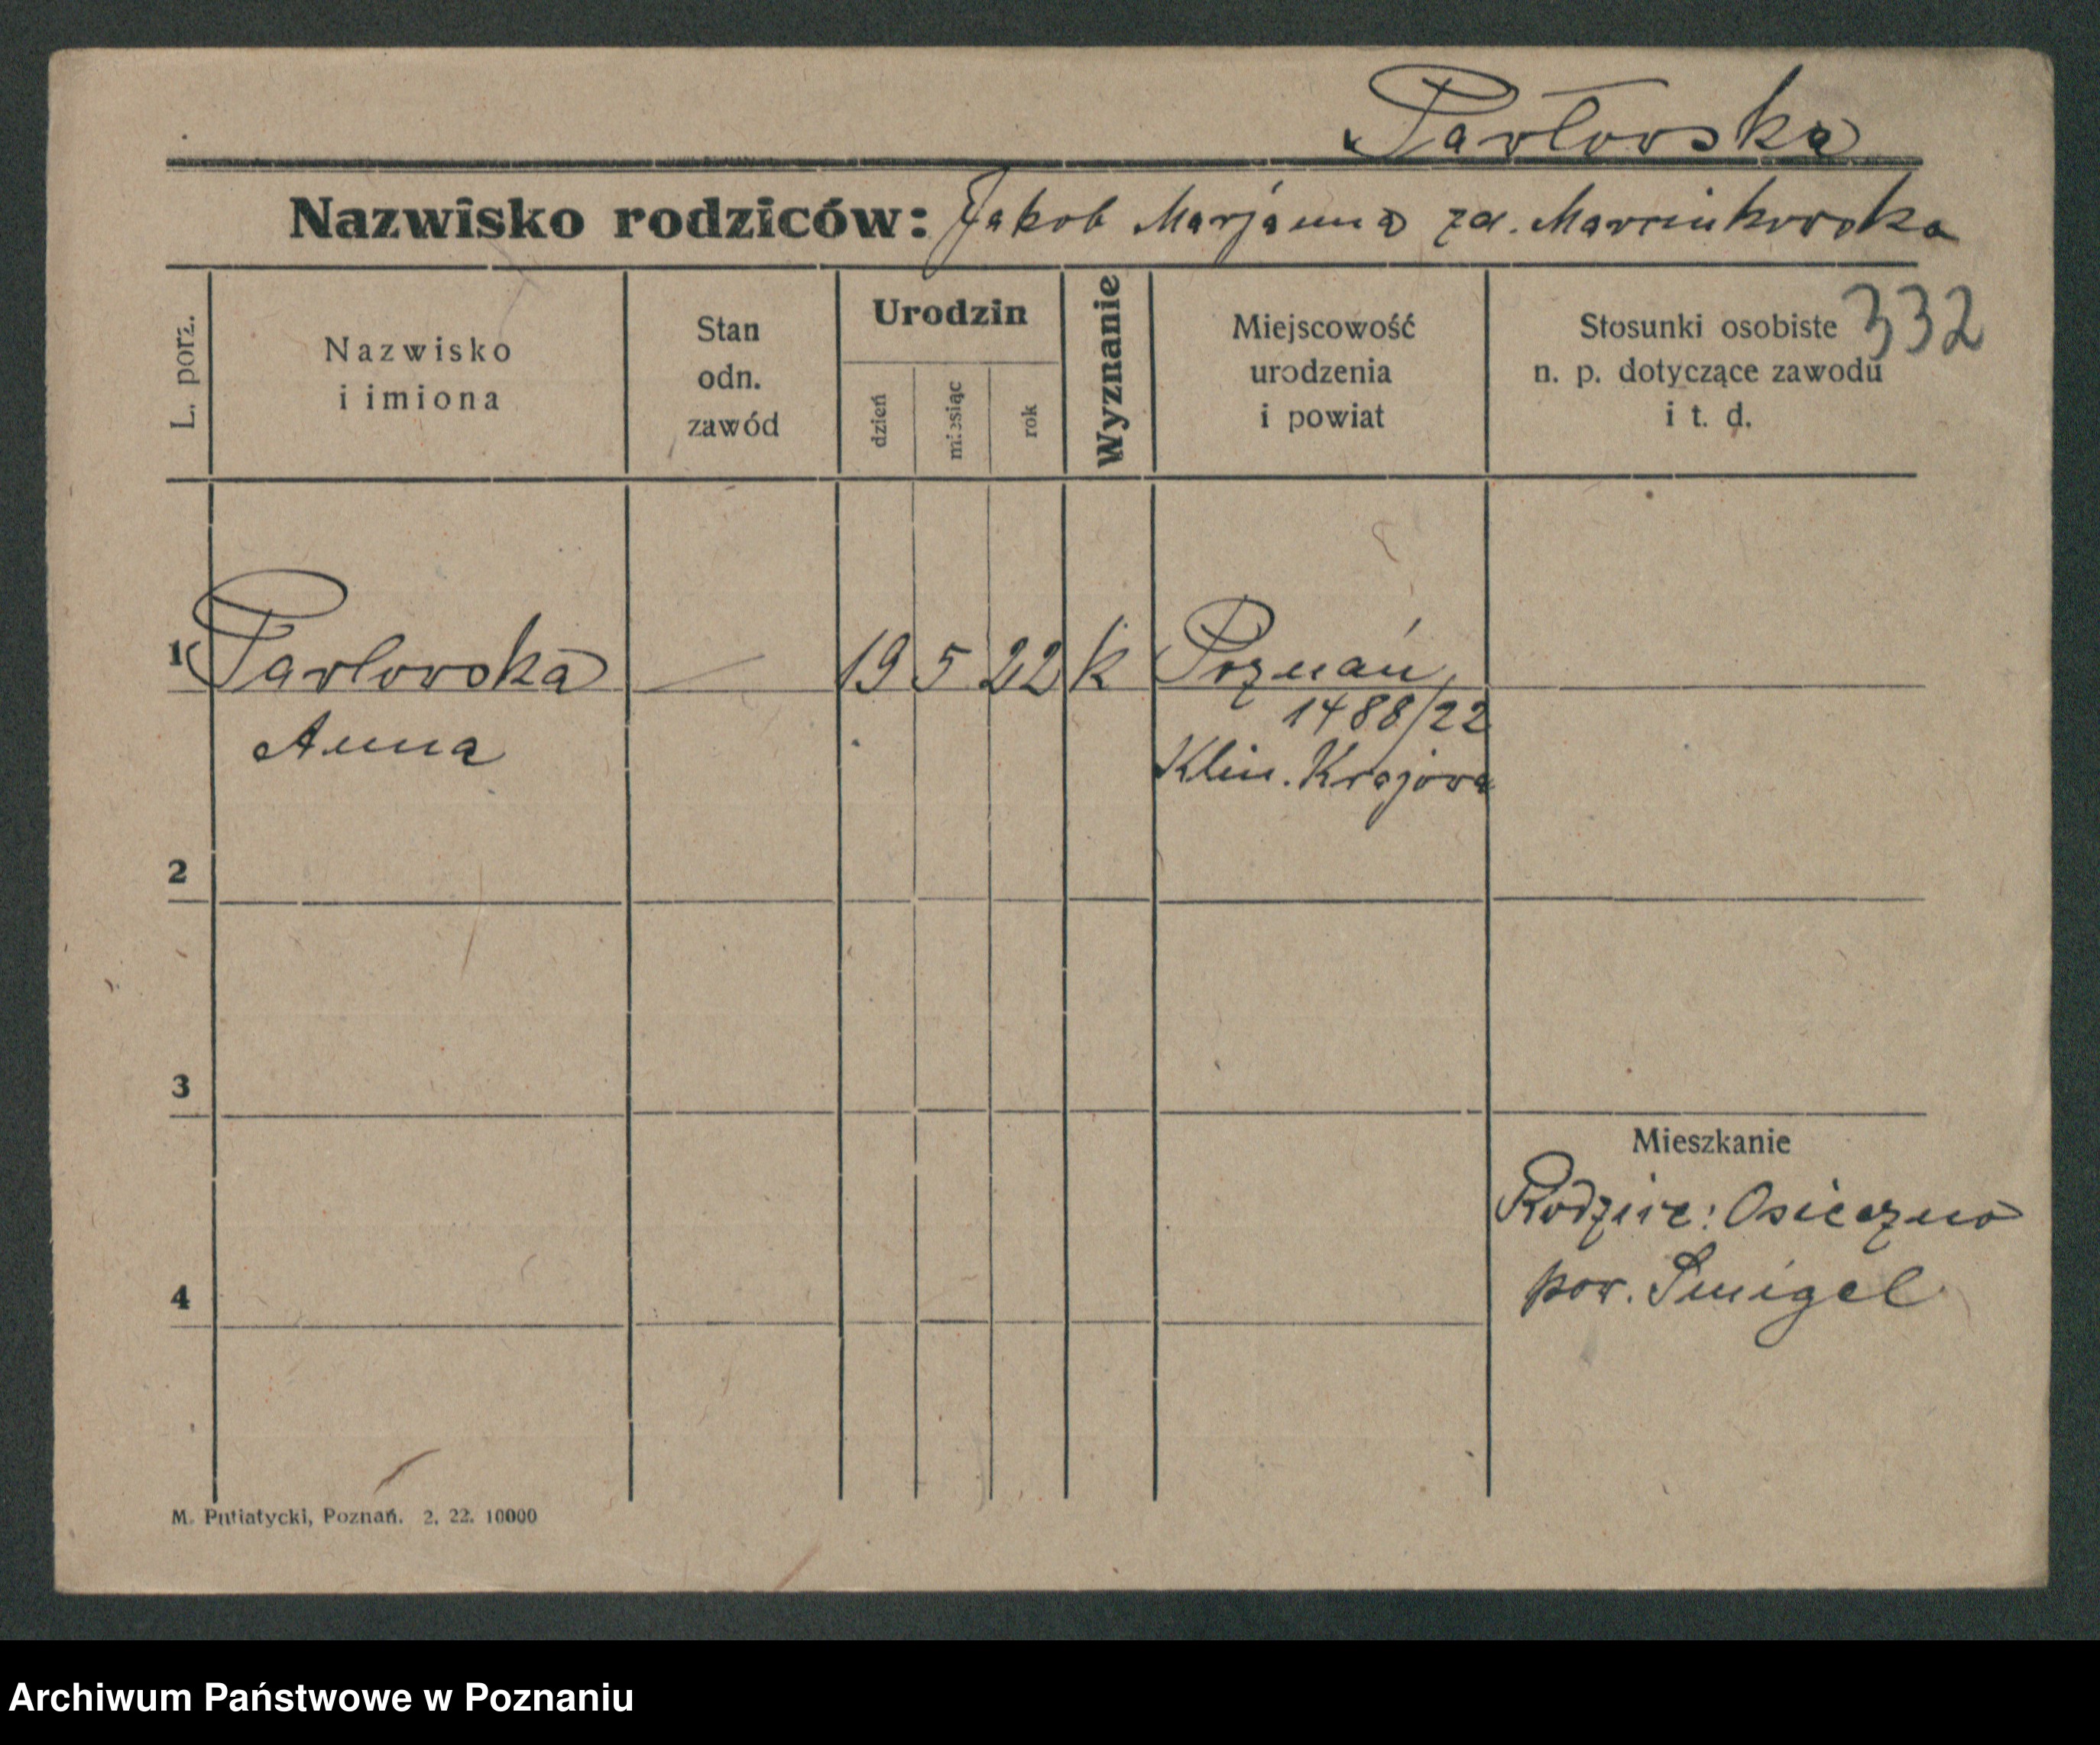 Pawłowska
Nazwisko rodziców: Jakob Marjanna zd. Marcinkowska
332
L. porz.
Nazwisko
i imiona
Stan
odn.
zawód
Urodzin
dzień
miesiąc
rok
Wyznanie
Miejscowość
urodzenia
i powiat
Stosunki osobiste
n. p. dotyczące zawodu
i t. d.
1 Pawlowska — 19 5 22 k Poznań,
Anna
1488/22
Klin. Krajowa
2
3
Mieszkanie
Rodzice: Osieczno
pow. Śmigel
4
M. Putiatycki, Poznań. 2. 22. 10000
Archiwum Państwowe w Poznaniu